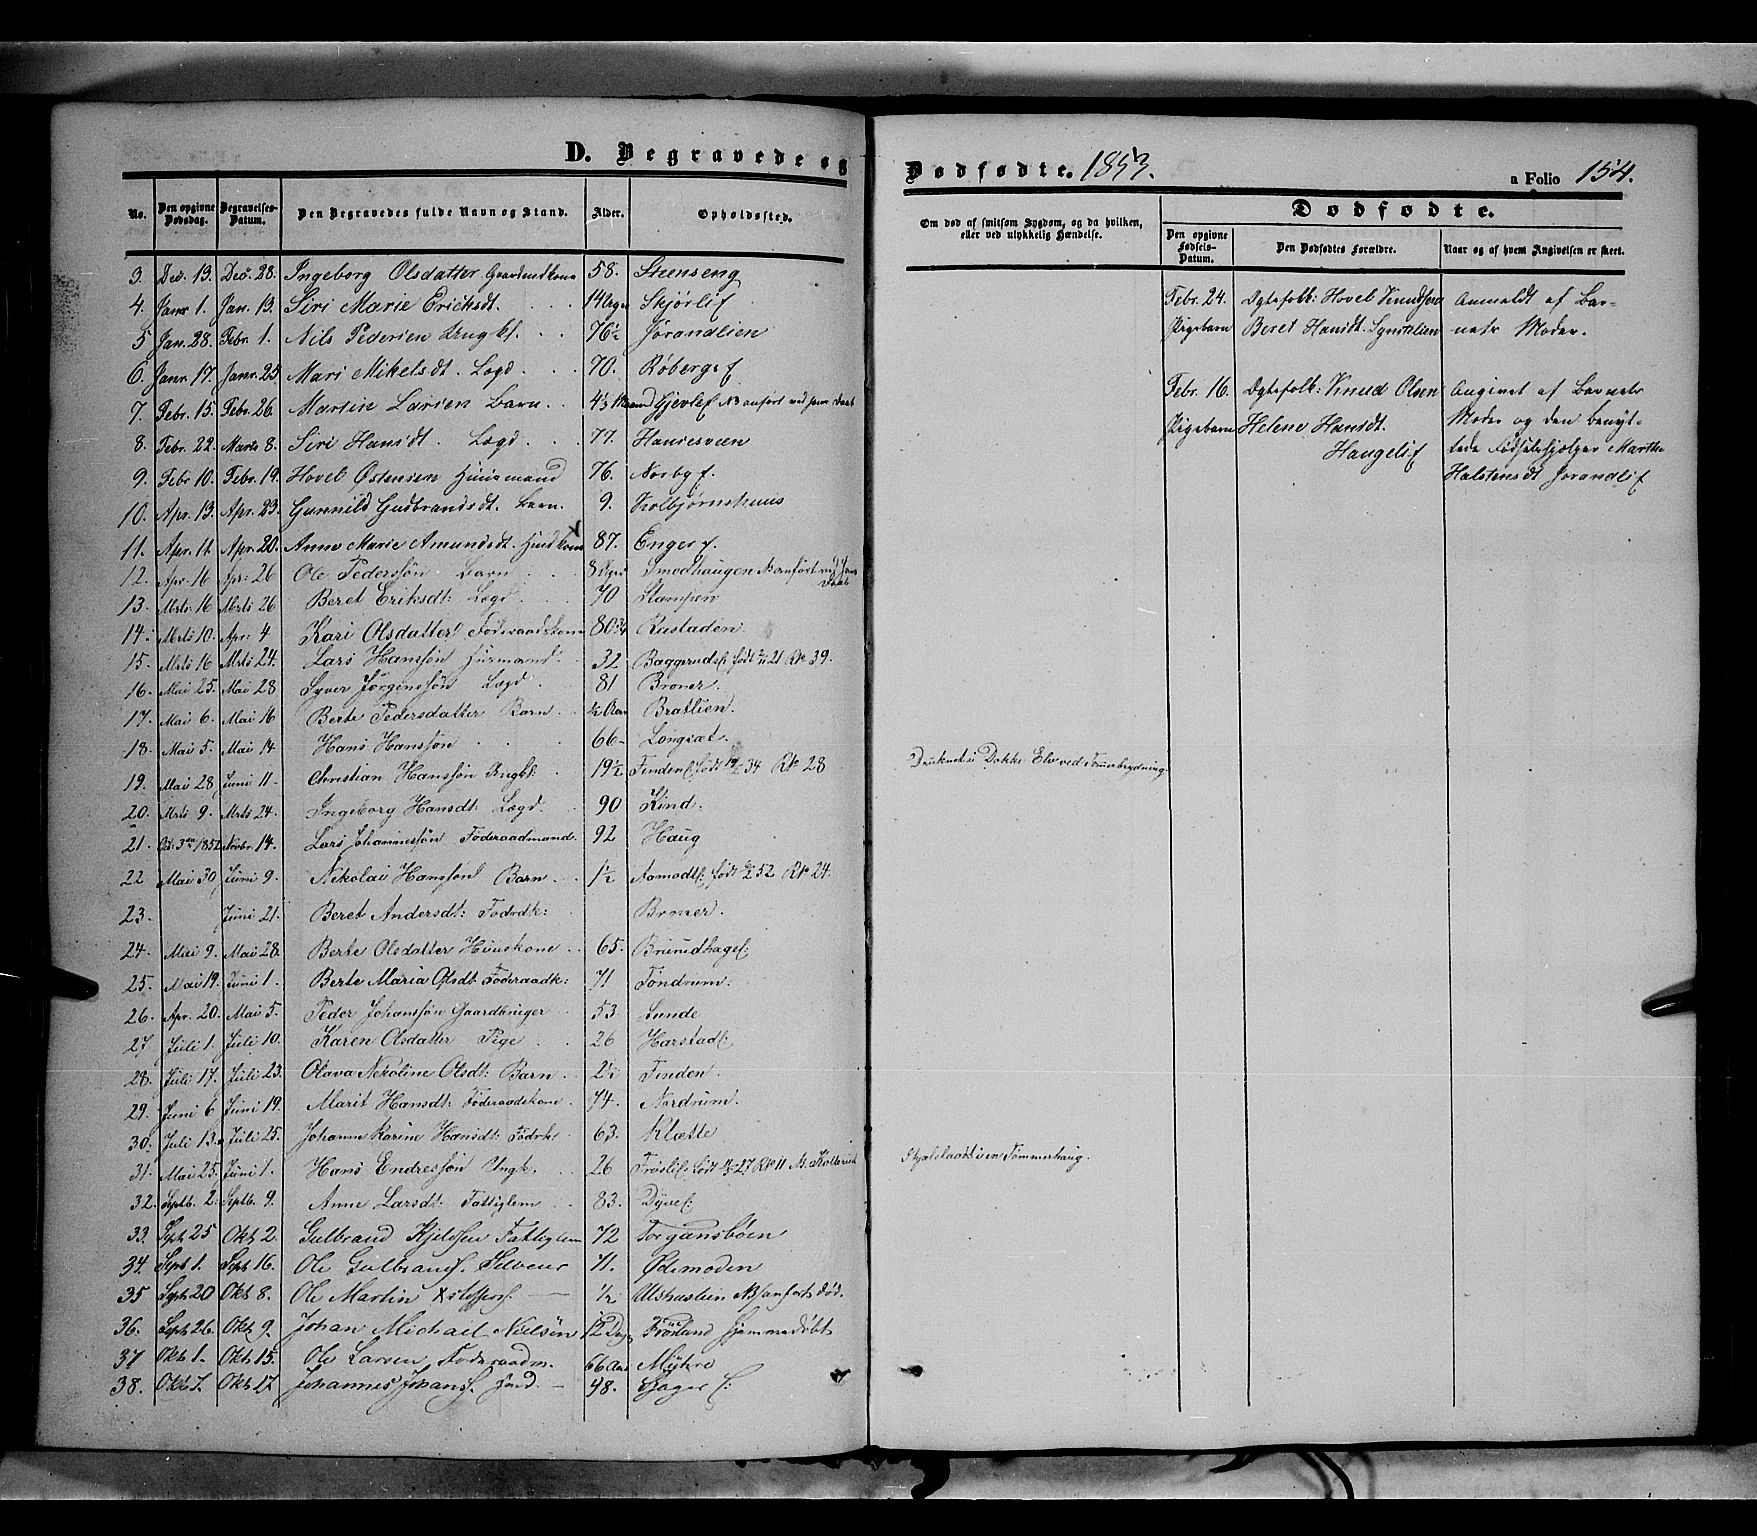 D. Begravede og
No. | Den opgivne Dødsdag. | Begravelses-Datum. | Den Begravedes fulde Navn og Stand. | Alder. | Opholdssted.
3. Dec. 13. Dec. 28. Ingeborg Olsdatter Gaardmdkone 58. Steenseng
4. Janr 1. Jan. 13. Siri Marie Ericksdt. 14 Skjørlif
5 Jan. 28. Febr. 1. Nils Pedersen Ungkl. 76½ Jørandlien
6. Janr. 17. Janr. 25 Mari Mikelsdt. Lægd 70. Røbergsf
7. Febr. 15. Febr. 26. Martin Larsen Barn 4⅓ Gjevlef NB anført ved hjem Daab
8. Febr. 22. Marts 8. Siri Hansdt. Lægd. 77. Hansesveen
9. Febr 10. Febr. 19. Hovel Østensen Huusmand 76. Norby f.
10. Apr. 13. Apr. 23. Gunnild Gudbrandsdt. Barn. 9. Kolbjørnshuus
11. Apr. 11. Apr. 20. Anne Marie Amundsdt. Husdkone 87. Enger f.
12. Apr. 16 Apr. 26 Ole Pederssøn Barn 8 Smedhaugen NB anført ved hjem Daab
13. Mrts 16 Mrts 26 Beret Eriksdt: Lægd. 70 Stampen
14. Mrts 10. Apr. 4 Kari Olsdatter Føderaadskone 80¾ Rustaden.
15. Mrts 16 Mrts 24. Lars Hanssøn Husmand. 32 Baggerudsf. født 21 No 39.
16. Mai 25. Mai 28 Syver Jørgenssøn Lægd. 81 Broner.
17. Mai 6. Mai 16 Berte Pedersdatter Barn ½ Aar Bratlien.
18. Mai 5. Mai 14. Hans Hanssøn 66 Longsæt.
19. Mai 28 Juni 11. Christian Hanssøn Ungkl: 19½ Findenf: født 34 No 28
20. Mrts 9. Mrts 24. Ingeborg Hansdt: Lægd. 90 Kind.
21. Oct: 3 1852 Novbr. 14. Lars Johannessøn Føderaadmand. 92 Haug
22 Mai 30 Juni 9. Nikolai Hanssøn Barn 1½ Aamodtf: født 52 No 24.
23. Juni 21. Beret Andersdt: Fødrdk: Broner.
24. Mai 9. Mai 28. Berte Olsdatter Huuskone 65. Bruundhagef:
25. Mai 19. Juni 1. Berte Maria Olsdt: Føderaadk: 71 Fondrum.
26. Apr. 20. Mai 5. Peder Johanssøn Gaardbruger 53. Lunde
27 Juli 1. Juli 10. Karen Olsdatter Pige 26 Harstadf:
28. Juli 17. Juli 23. Olava Nikoline Olsdt: Barn 2½ Finden.
29. Juni 6 Juni 19. Marit Hansdt: Føderaadskone 74. Nordrum.
30. Juli 13. Juli 25. Johanne Karine Hansdt: Fødrk. 63. Klætte
31. Mai 25. Juni 1. Hans Endressøn Ungk. 26 Frøslif: født 27 No 11 N.
32. Septb. 2. Septb. 9. Anne Larsdt: Fattiglem 83. Dyvef:
33. Sept 25 Okt 2. Gulbrand Kjelssen Fattiglem 72 Torgunsbøen
34. Sept 1. Sept 16. Ole Gulbrands. Selveier 71. Ødemoden
35 Sept. 20 Okt 8. Ole Martin ½ Ulshustien NB anført død.
36. Sept. 26. Okt 9. Johan Michael Nielsen 12 Dag Frøsland hjemmedøbt
37 Okt 1. Okt. 15. Ole Larsen Føderaadm. 66 Aar Mykre
38. Okt 7. Okt 17 Johannes Johans. Husd. 48. Hager f:
Dødfødte. 1853. a Folio 154.
Om død af smitsom Sygdom, og da hvilken, eller ved ulykkelig Hændelse.
Dødfødte.
Den opgivne Fødsels-Datum. | Den Dødfødtes Forældre. | Naar og af hvem Angivelsen er skeet.
Febr. 24. Ægtefolk: Hovel Knudsen Anmeldt af Bar-
Pigebarn Beret Hansdt. Synstelien nets Moder.
Febr. 16. Ægtefolk: Knud Olsen Angivet af Barnets
Pigebarn Helene Hansdt. Moder og den benyt-
Haugelif tede Fødselshjælper Marthe
Halstensdt Jorandlif
Druknet i Dokka Elv ved Tømmerbrydning.
Ihjelslaaet i en Tømmerhaug.